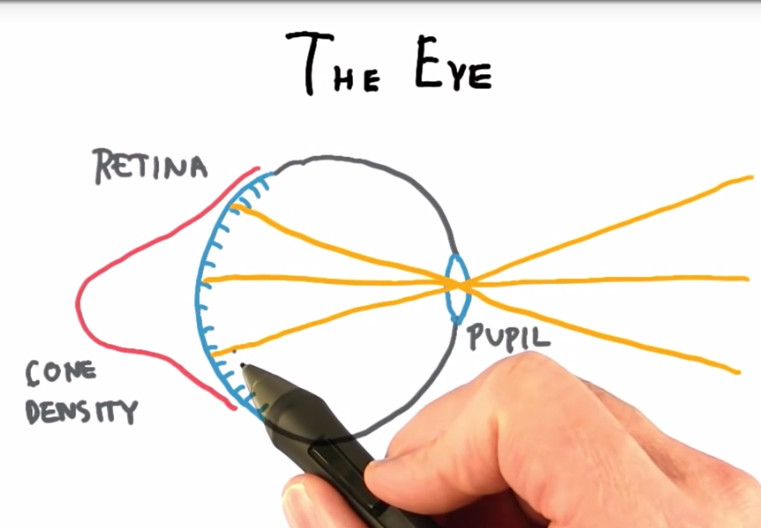 THE EYE
RETINA
PUPIL
CONE
DENSITY